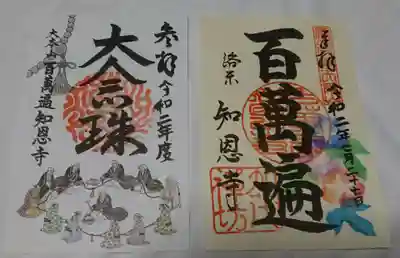 参拝 令和二年度
大念珠
大本山 百萬遍 知恩寺
拝 令和二年 月二十七日
百萬遍
洛東 知恩寺